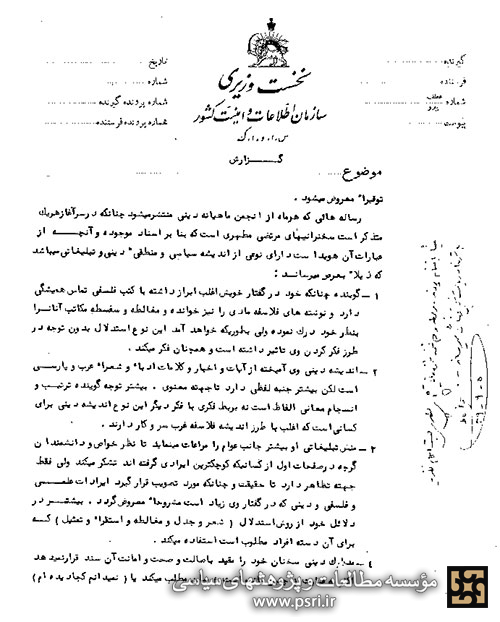 نخست وزیری
سازمان اطلاعات و امنیت کشور
س.ا.و.ا.ک
گزارش
گیرنده
فرستنده
شماره عطف پیرو
پیوست
تاریخ
شماره
شماره پرونده گیرنده
شماره پرونده فرستنده
موضوع
توقیراً معروض میشود .
رساله هائی که هرماه از انجمن ماهیانه دینی منتشر میشود چنانکه در سر آغاز هریک
متذکر است سخنرانیهای مرتضی مطهری است که بنا بر اسناد موجوده و آنچه از
عبارات آن هویدا است دارای نوعی از اندیشه سیاسی و منطقی دینی و تبلیغاتی میباشد
که ذیلاً بعرض میرساند :
۱ – گوینده چنانکه خود در گفتار خویش اغلب ابراز داشته با کتب فلسفی تماس همیشگی
دارد و نوشته های فلاسفه مادی را نیز خوانده و مغالطه و سفسطه مکاتب آنانرا
بنظر خود درک نموده ولی بطوریکه خواهد آمد این نوع استدلال بدون توجه در
طرز فکر کردن وی تاثیر داشته است و همچنان فکر میکند .
۲ – اندیشه دینی وی آمیخته از آیات و اخبار و کلامات ادباء و شعراء عرب و پارسی
است لکن بیشتر جنبه لفظی دارد تا جهته معنوی . بیشتر توجه گوینده ترتیب و
انسجام معانی الفاظ است نه بربط فکری با فکر دیگر این نوع اندیشه دینی برای
کسانی است که اغلب با طرز اندیشه فلاسفه غرب سر و کار دارند .
۳ – منش تبلیغاتی او بیشتر جانب عوام را مراعات مینماید تا نظر خواص و دانشمندان
گرچه در صفحات اول از کسانیکه کوچکترین ایرادی گرفته اند تشکر میکند ولی فقط
جهته تظاهر دارد تا حقیقت و چنانکه مورد تصویب قرار گیرد ایرادات علمی
و فلسفی و دینی که در گفتار وی زیاد است مشروحاً معروض گردد . بیشتر در
دلائل خود از روش استدلال ( شعر و جدل و مغالطه و استقراء و تمثیل ) که
برای آن دسته افراد مطلوب است استفاده میکند .
۴ – مدارک دینی سخنان خود را مقید باصالت و صحت و امانت آن سند قرار نمیدهد
مطلب میکند یا ( نمیدانم کجا دیده ام )
مؤسسه مطالعات و پژوهشهای سیاسی
www.psri.ir